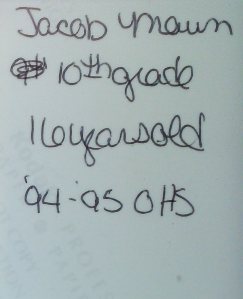 Jacob Maun
10th grade
16 years old
'94-'95 OHS